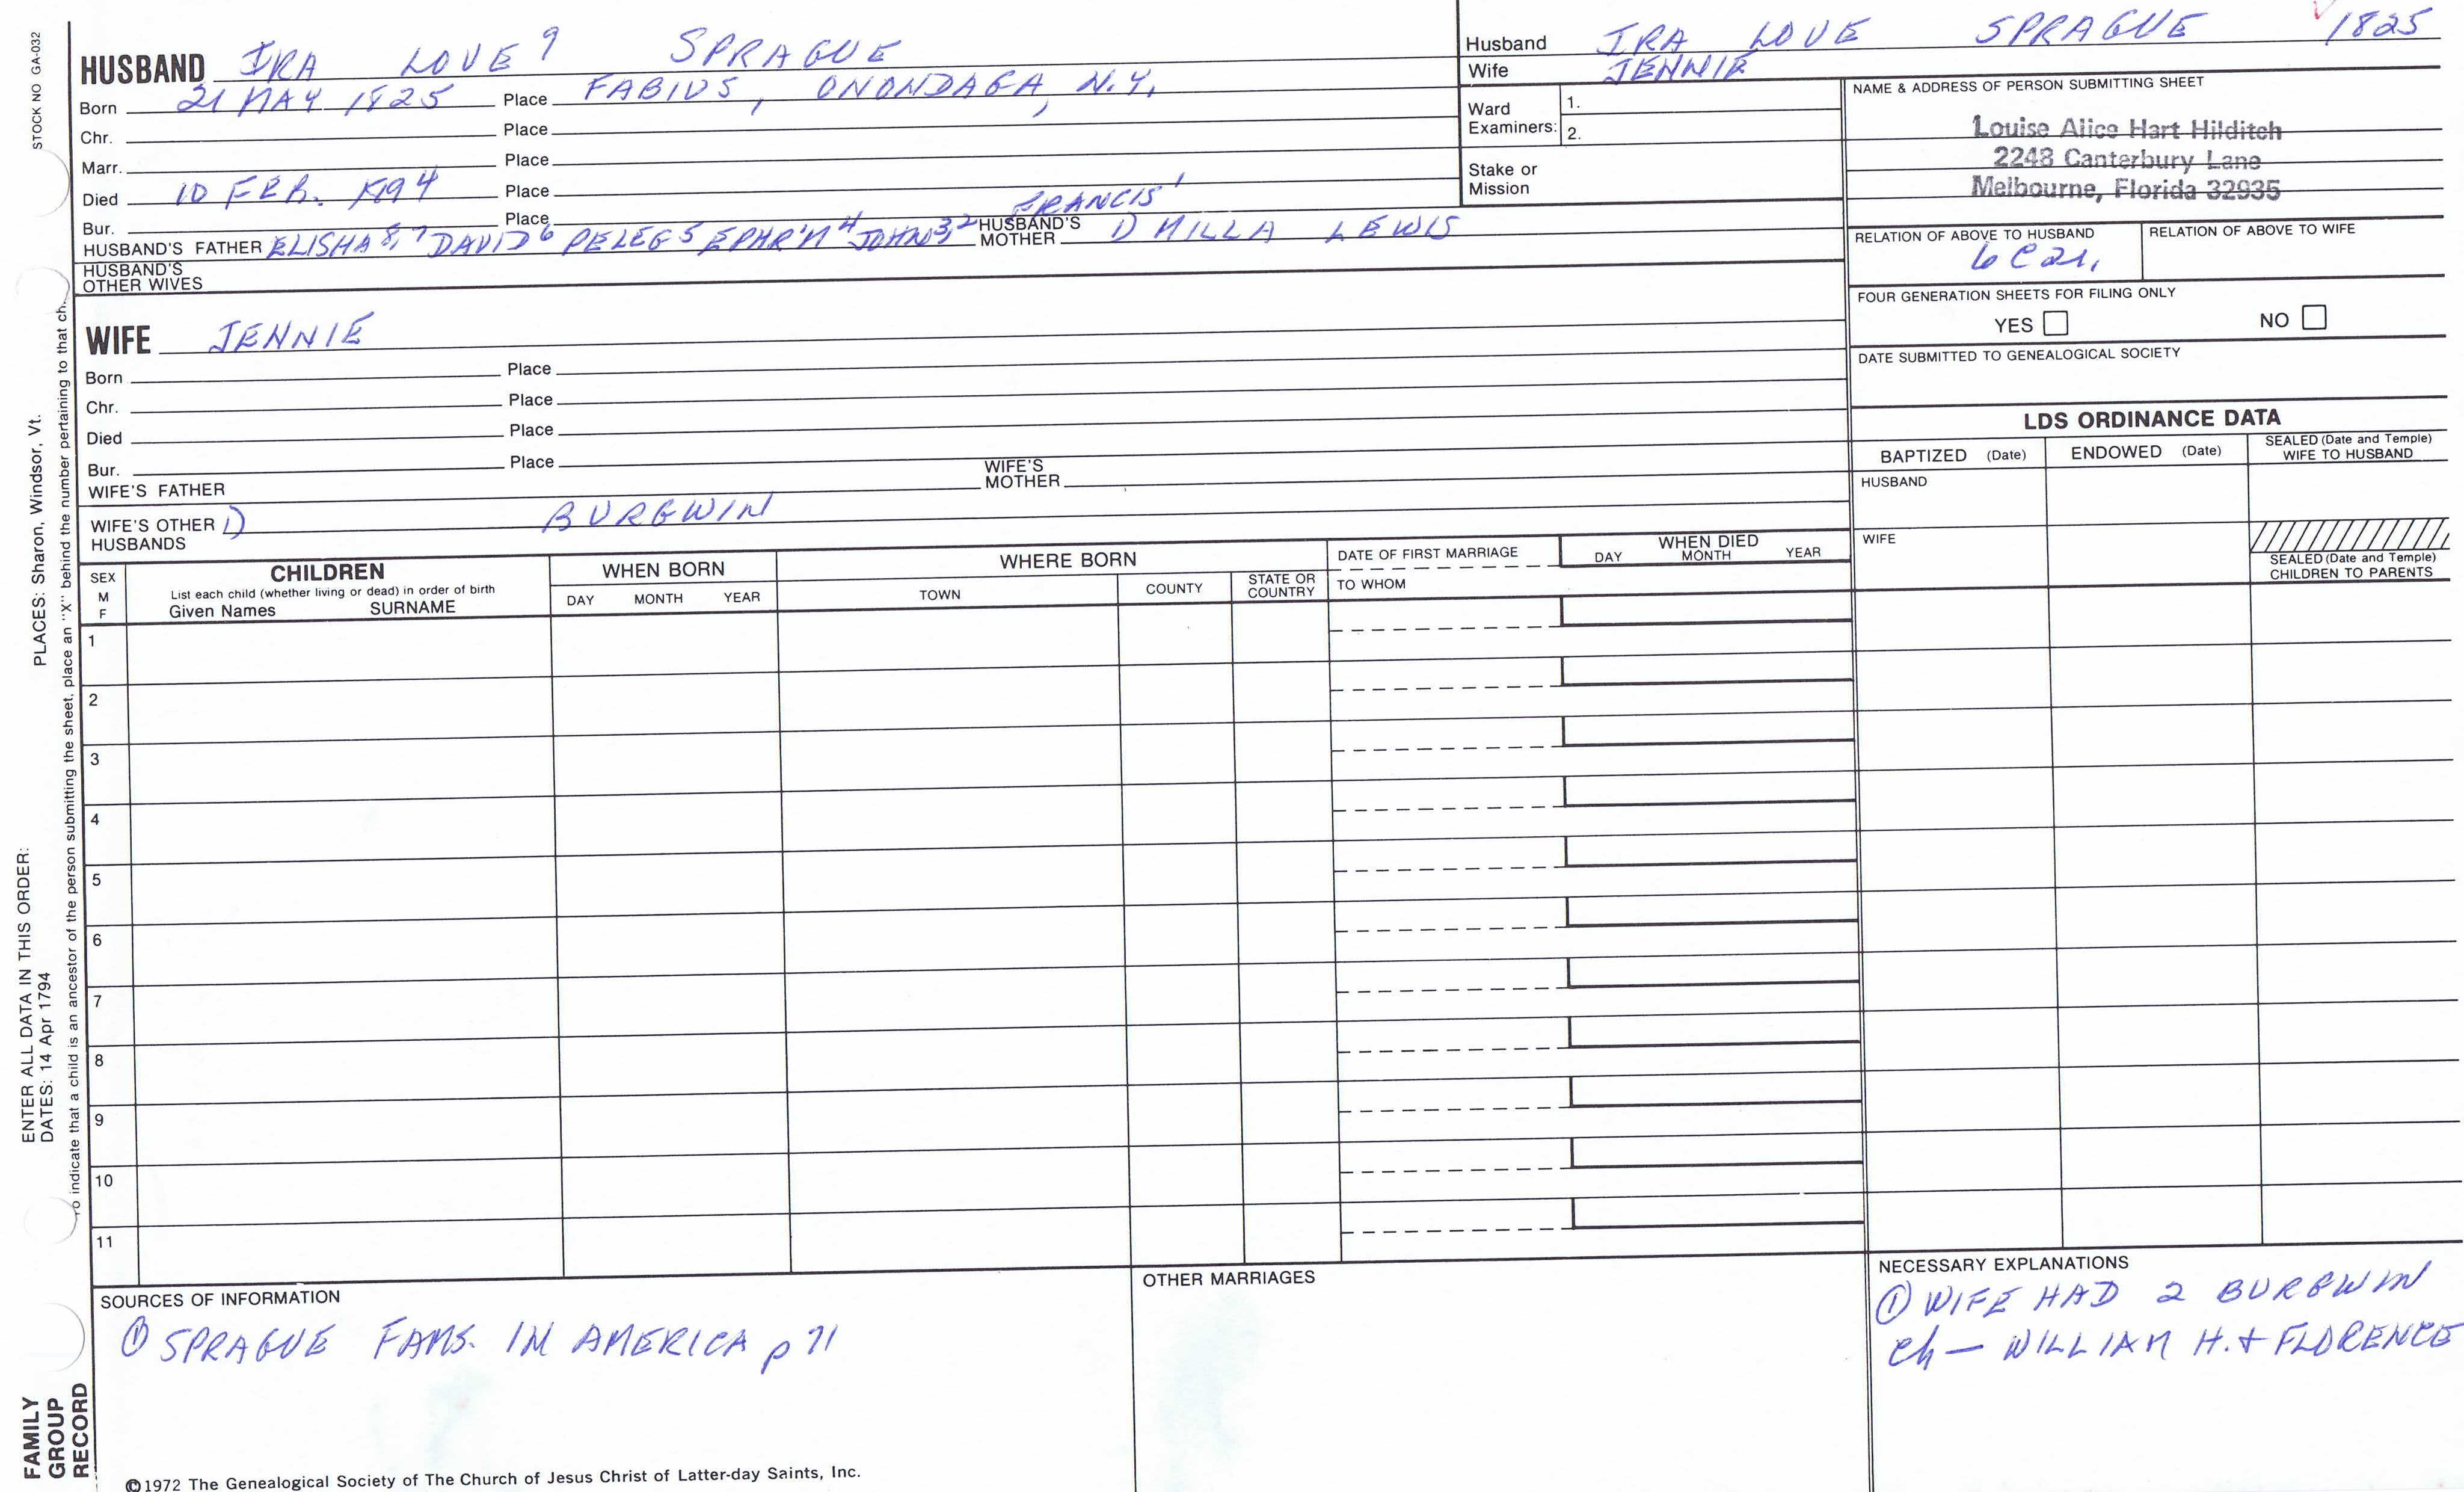 STOCK NO GA-032
HUSBAND IRA LOVE 9 SPRAGUE
Born 21 MAY 1825 Place FABIUS, ONONDAGA, N.Y.
Chr. Place
Marr. Place
Died 10 FEB. 1894 Place
Bur. Place FRANCIS 1
HUSBAND'S FATHER ELISHA 8,7 DAVID 6 PELEG 5 EPHR'M 4 JOHN 3,2 HUSBAND'S MOTHER D MILLA LEWIS
HUSBAND'S OTHER WIVES
Husband IRA LOVE SPRAGUE 1825
Wife JENNIE
Ward Examiners: 1.
2.
Stake or Mission
NAME & ADDRESS OF PERSON SUBMITTING SHEET
Louise Alice Hart Hilditch
2248 Canterbury Lane
Melbourne, Florida 32935
RELATION OF ABOVE TO HUSBAND
6C2r,
RELATION OF ABOVE TO WIFE
FOUR GENERATION SHEETS FOR FILING ONLY
YES NO
DATE SUBMITTED TO GENEALOGICAL SOCIETY
WIFE JENNIE
Born Place
Chr. Place
Died Place
Bur. Place
WIFE'S FATHER WIFE'S MOTHER
WIFE'S OTHER HUSBANDS 1) BURGWIN
LDS ORDINANCE DATA
BAPTIZED (Date) ENDOWED (Date) SEALED (Date and Temple) WIFE TO HUSBAND
HUSBAND
WIFE
SEALED (Date and Temple) CHILDREN TO PARENTS
SEX M F
CHILDREN
List each child (whether living or dead) in order of birth
Given Names SURNAME
WHEN BORN
DAY MONTH YEAR
WHERE BORN
TOWN COUNTY STATE OR COUNTRY
DATE OF FIRST MARRIAGE
TO WHOM
WHEN DIED
DAY MONTH YEAR
1
2
3
4
5
6
7
8
9
10
11
SOURCES OF INFORMATION
① SPRAGUE FAMS. IN AMERICA p 71
OTHER MARRIAGES
NECESSARY EXPLANATIONS
① WIFE HAD 2 BURGWIN
ch — WILLIAM H. & FLORENCE
©1972 The Genealogical Society of The Church of Jesus Christ of Latter-day Saints, Inc.
FAMILY
GROUP
RECORD
ENTER ALL DATA IN THIS ORDER:
DATES: 14 Apr 1794 PLACES: Sharon, Windsor, Vt.
To indicate that a child is an ancestor of the person submitting the sheet, place an "X" behind the number pertaining to that ch.